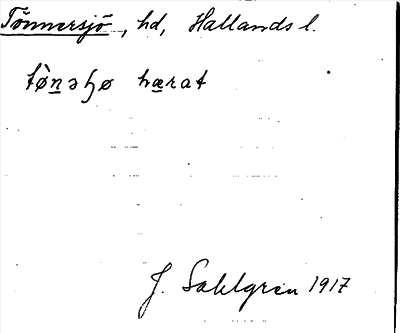 Tönnersjö, hd, Hallands l.
tø̀nəɧø hærat
J. Sahlgren 1917